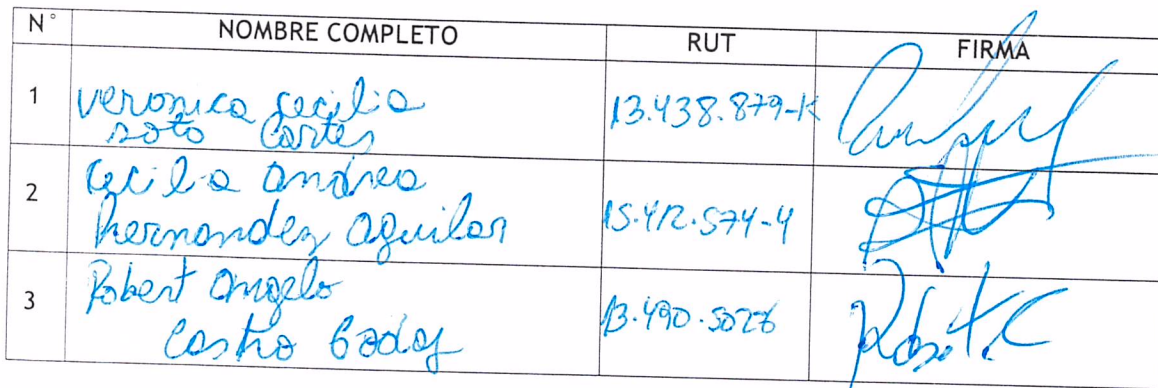 N° NOMBRE COMPLETO RUT FIRMA
1 veronica cecilia
soto Cortes 13.438.879-K
2 Cecilia Andrea
hernandez aguilar 15.412.574-4
3 Robert Angelo
Castro Godoy 13.490.5026